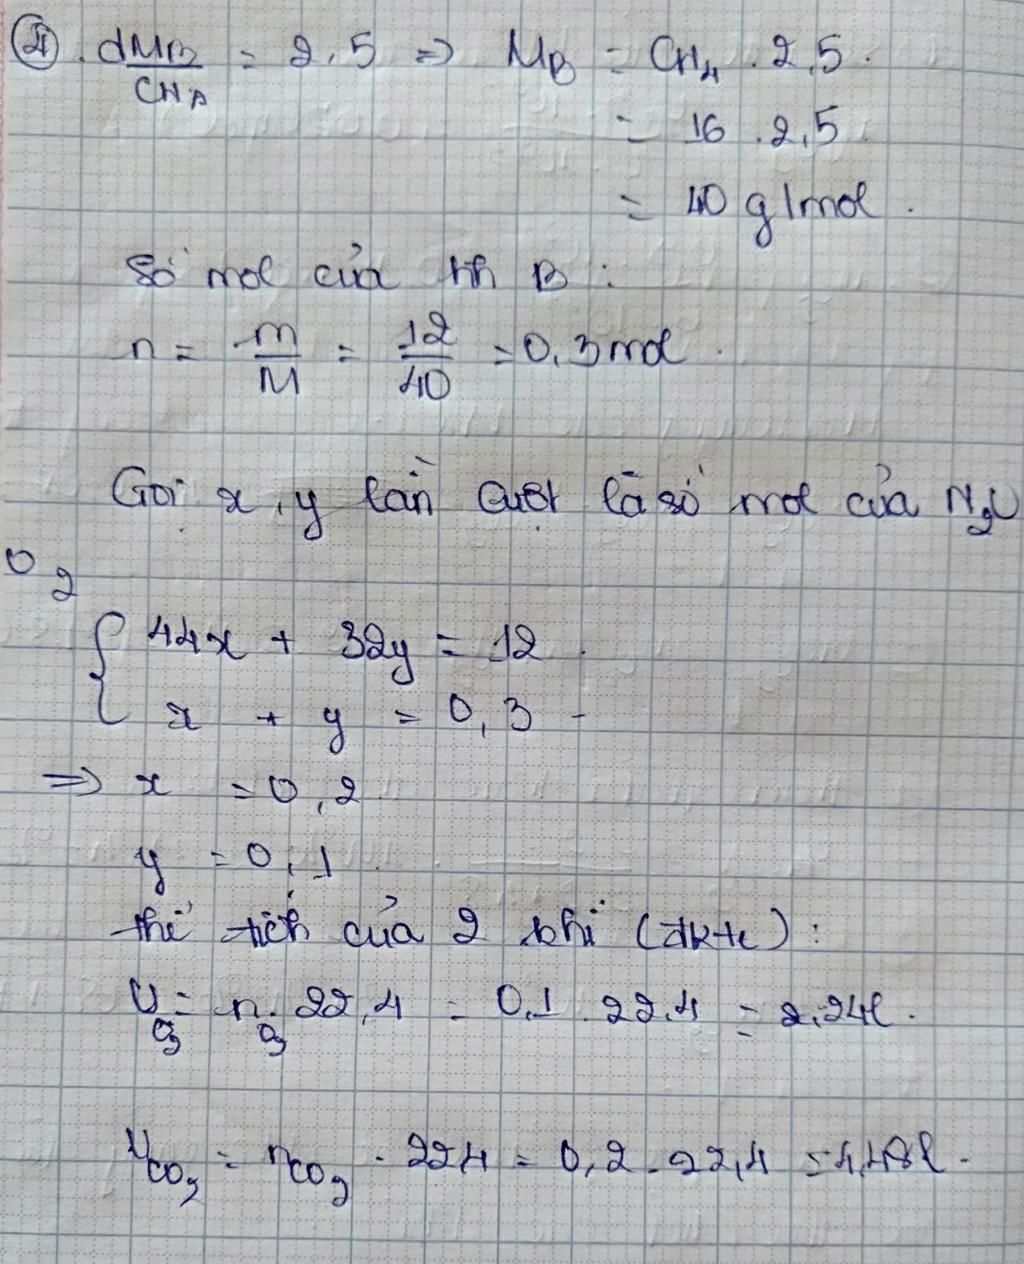 ④. dMB/CH4 = 2,5 => MB = CH4 . 2,5.
= 16 . 2,5
= 40 g/mol.
Số mol của hh B :
n = m/M = 12/40 = 0,3 mol.
Gọi x, y lần lượt là số mol của
O2
{ 44x + 32y = 12.
x + y = 0,3
=> x = 0,2
y = 0,1.
thể tích của 2 khí (đktc) :
VO2 = nO2 . 22,4 = 0,1 . 22,4 = 2,24l.
VCO2 = nCO2 . 22,4 = 0,2 . 22,4 = 4,48l.